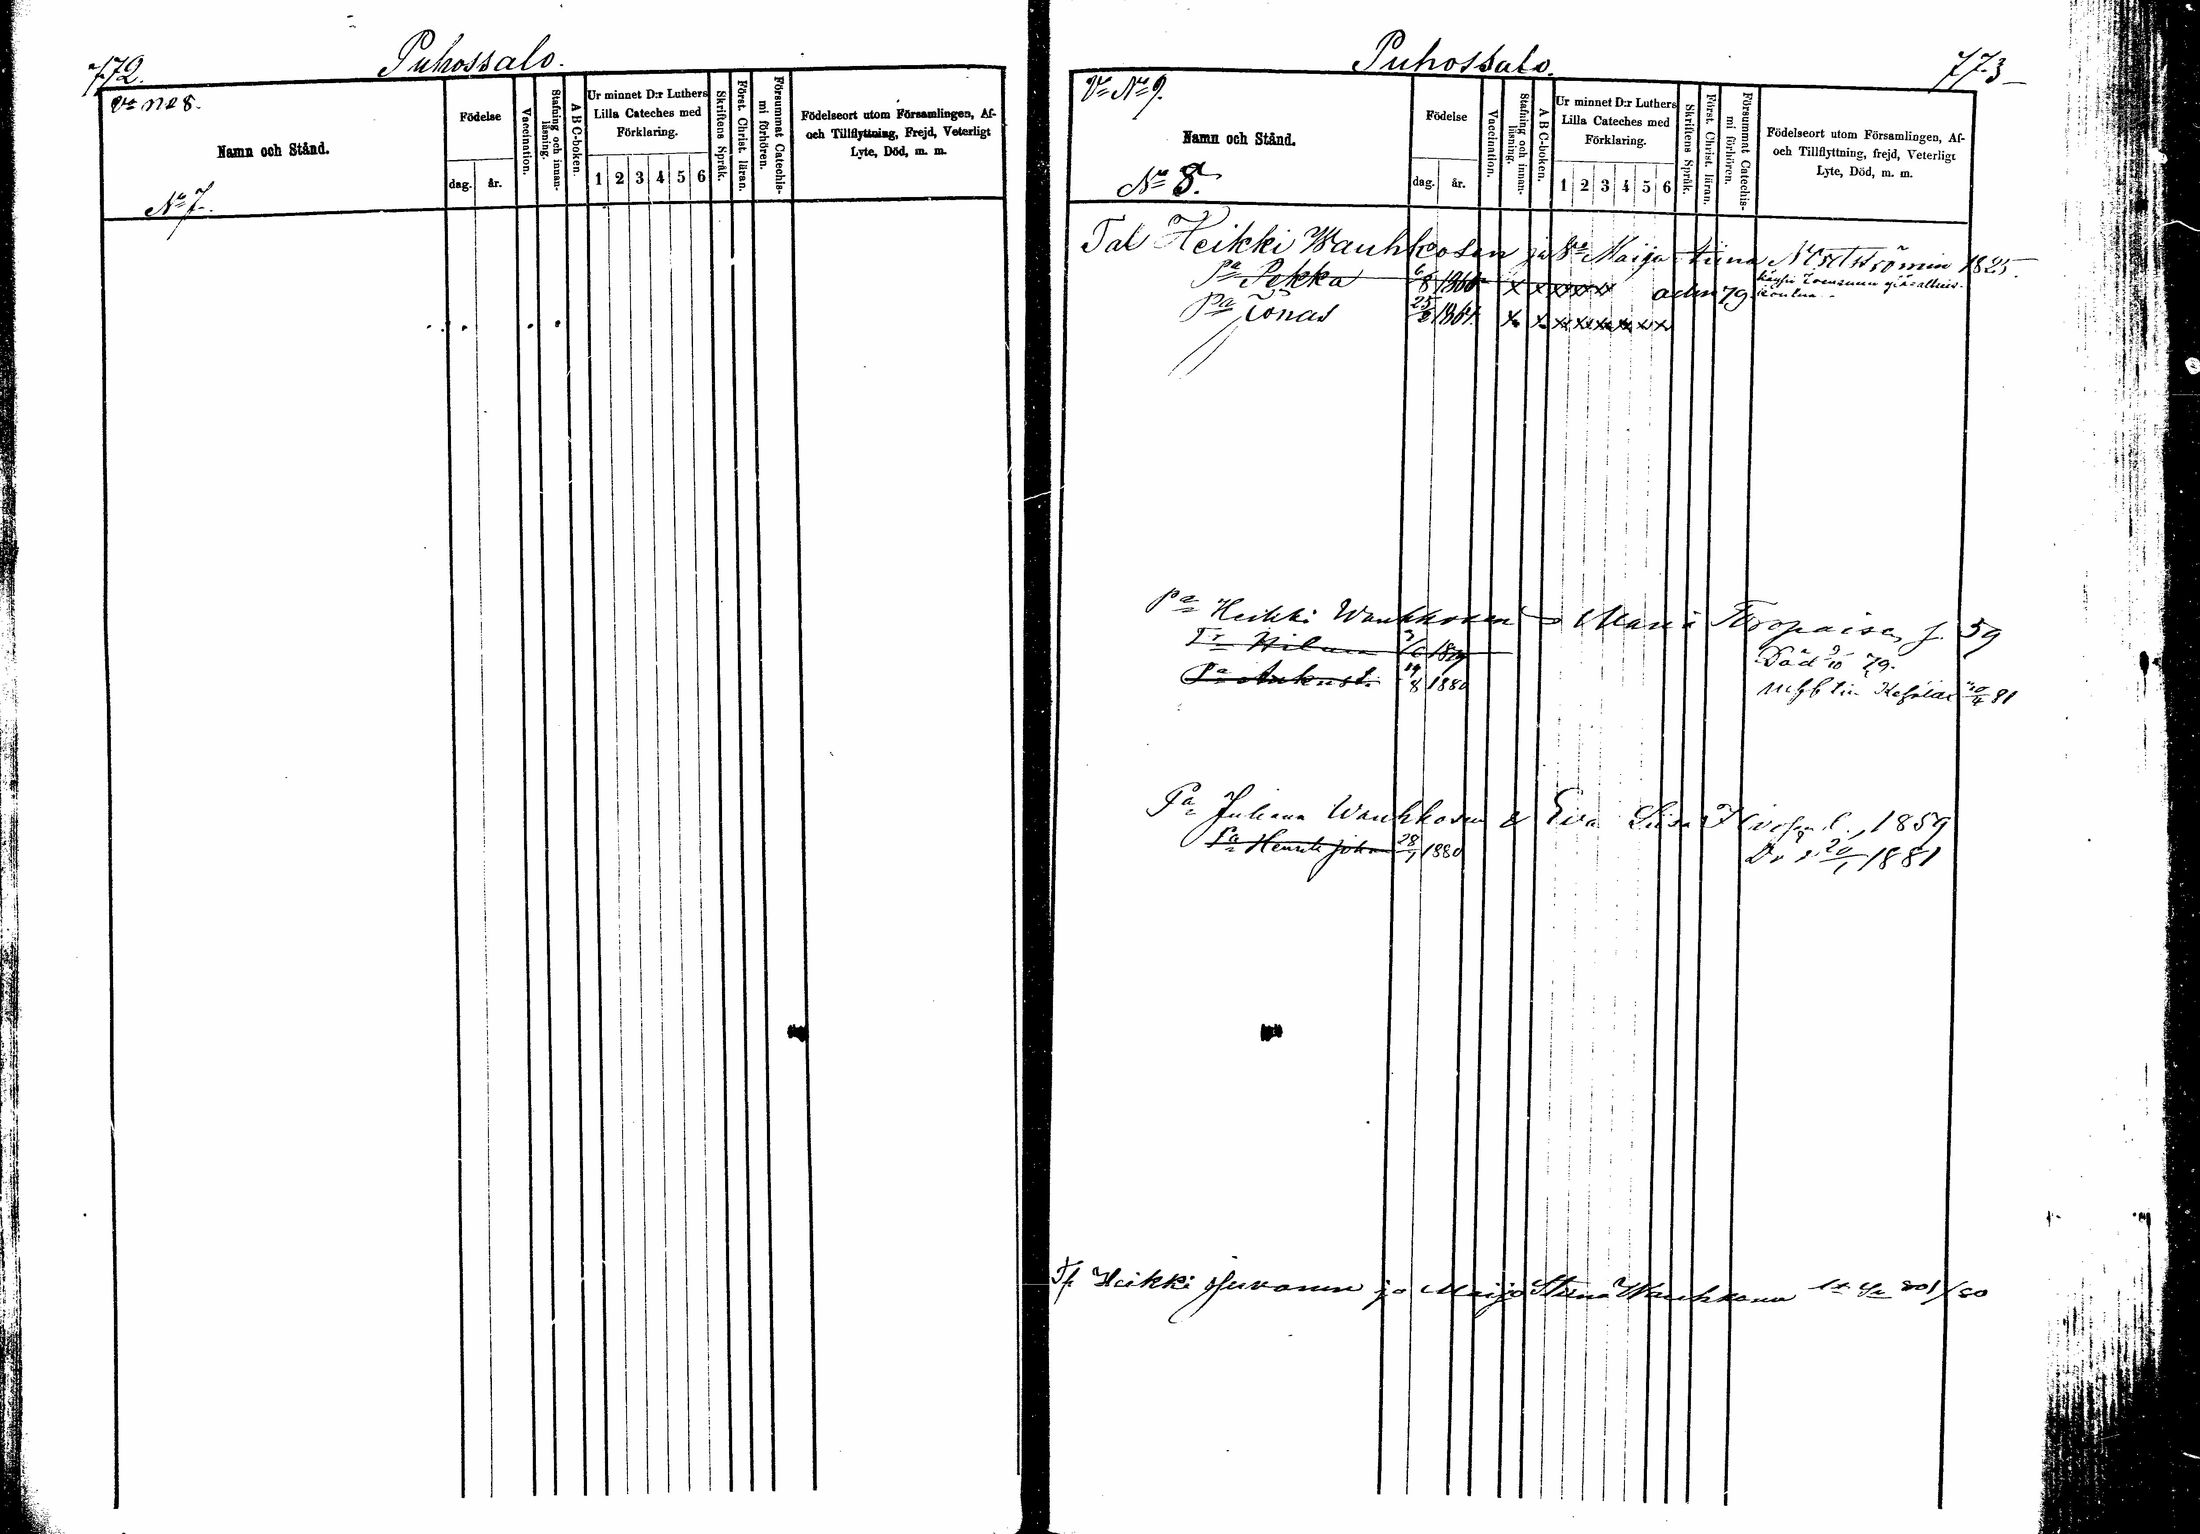 772.
Puhossalo.
Va No 8.
Namn och Stånd.
No 7.
Födelse
dag.
år.
Vaccination.
Stafning och innan-
läsning.
A B C-boken.
Ur minnet D:r Luthers
Lilla Cateches med
Förklaring.
1 2 3 4 5 6
Skriftens Språk.
Först. Christ. läran.
Försummat Catechis-
mi förhören.
Födelseort utom Församlingen, Af-
och Tillflyttning, Frejd, Veterligt
Lyte, Död, m. m.
Puhossalo.
773
Va No 9.
Namn och Stånd.
No 8.
Födelse
dag.
år.
Vaccination.
Stafning och innan-
läsning.
A B C-boken.
Ur minnet D:r Luthers
Lilla Cateches med
Förklaring.
1 2 3 4 5 6
Skriftens Språk.
Först. Christ. läran.
Försummat Catechis-
mi förhören.
Födelseort utom Församlingen, Af-
och Tillflyttning, frejd, Veterligt
Lyte, Död, m. m.
Tal Heikki Wauhkosen ja Va Maija tiina 1825.
Pa Pekka 6/8 x x x x x x 79 käypi
koulua.
Pa Jonas x x x x x x x x
Pa Heikki Wauhkonen Maria f. 59
Tr Hilma Död 9/10 79.
Pa Aukusti 14/8 1880 81
Pa Juhana Wauhkosen & Eva Liisa 1859
Pa Henrik Johan 28/1 1880 20/1 1881
Heikki ja Maija Stina Wauhkonen